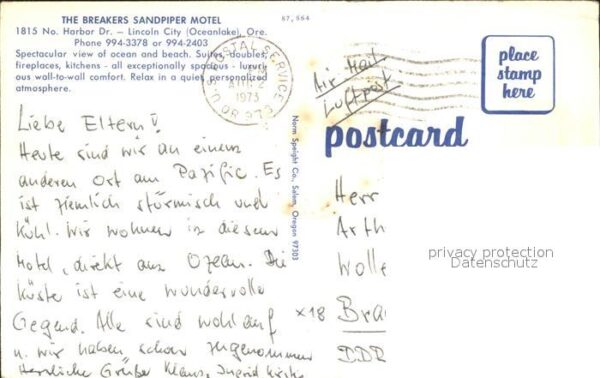 THE BREAKERS SANDPIPER MOTEL
1815 No. Harbor Dr. — Lincoln City (Oceanlake), Ore.
Phone 994-3378 or 994-2403
Spectacular view of ocean and beach. Suites, doubles,
fireplaces, kitchens - all exceptionally spacious - luxuri-
ous wall-to-wall comfort. Relax in a quiet, personalized
atmosphere.
87,564
U.S. POSTAL SERVICE
2
1973
OR 973
Air Mail
Luftpost
place
stamp
here
postcard
Norm Speight Co., Salem, Oregon 97303
Liebe Eltern!
Heute sind wir an einem
anderen Ort am Pazific. Es
ist ziemlich stürmisch und
kühl. Wir wohnen in diesem
Motel, direkt am Ozean. Die
Küste ist eine wundervolle
Gegend. Alle sind wohlauf
u. wir haben schon zugenommen
Herzliche Grüße Klaus, Ingrid
Herr
Arth
Wolle
×18 Bra
DDR
privacy protection
Datenschutz